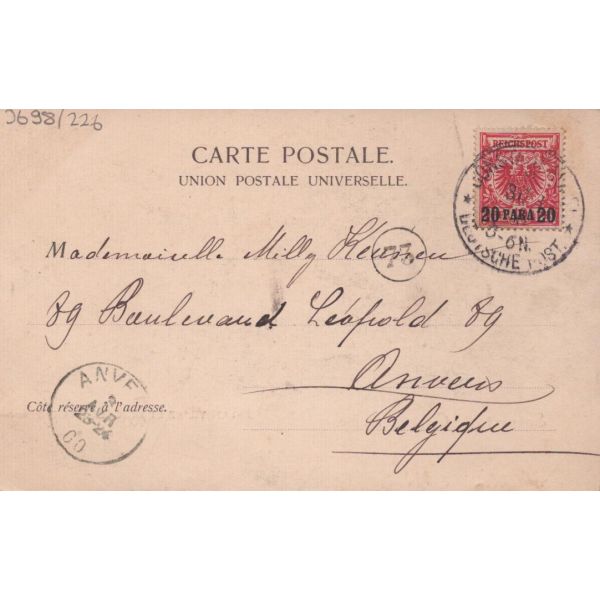 J698/226
CARTE POSTALE.
UNION POSTALE UNIVERSELLE.
REICHSPOST
20 PARA 20
31
5-6N.
DEUTSCHE POST.
Mademoiselle Milly
77
89 Boulevard Léopold 89
Anvers
Belgique
Côté réservé à l'adresse.
ANVE
23-24
00